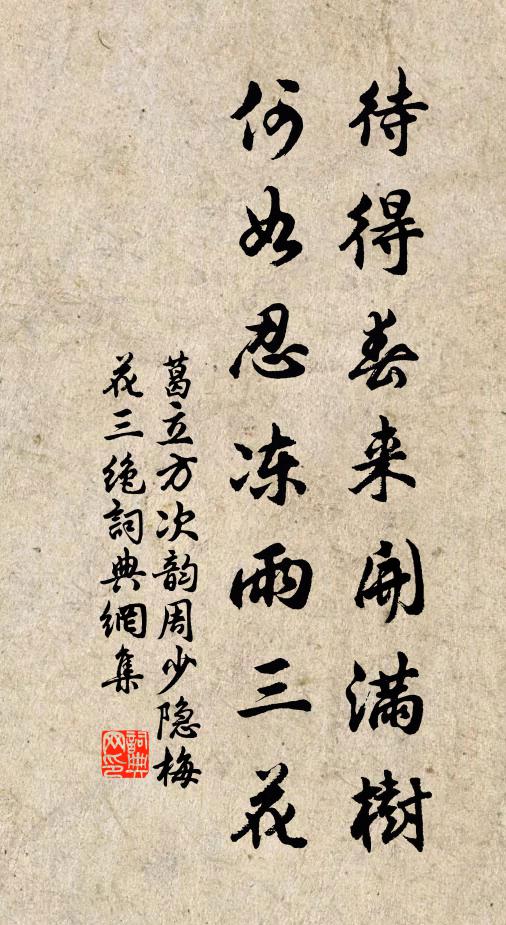 待得春来開滿樹
何如忍凍兩三花
葛立方次韵周少隐梅
花三绝詞典網集
詞典
网印